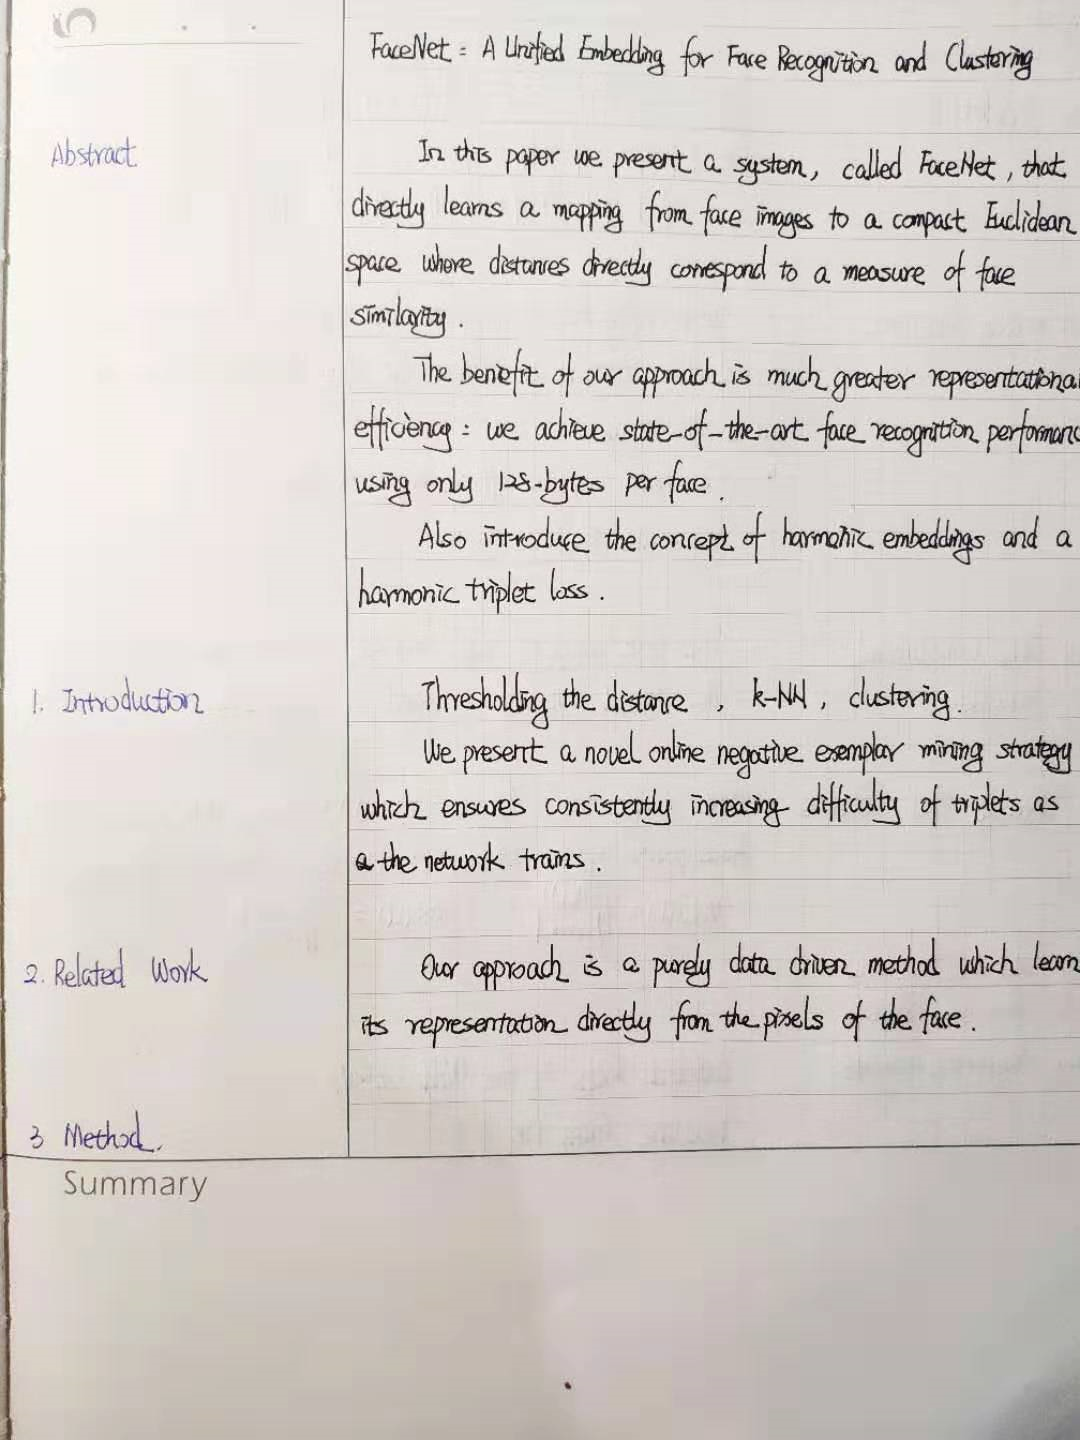 FaceNet: A Unified Embedding for Face Recognition and Clustering
Abstract
In this paper we present a system, called FaceNet, that
directly learns a mapping from face images to a compact Euclidean
space where distances directly correspond to a measure of face
similarity.
The benefit of our approach is much greater representational
efficiency: we achieve state-of-the-art face recognition performanc
using only 128-bytes per face.
Also introduce the concept of harmonic embeddings and a
harmonic triplet loss.
1. Introduction
Thresholding the distance, k-NN, clustering.
We present a novel online negative exemplar mining strategy
which ensures consistently increasing difficulty of triplets as
a the network trains.
2. Related Work
Our approach is a purely data driven method which learn
its representation directly from the pixels of the face.
3 Method.
Summary